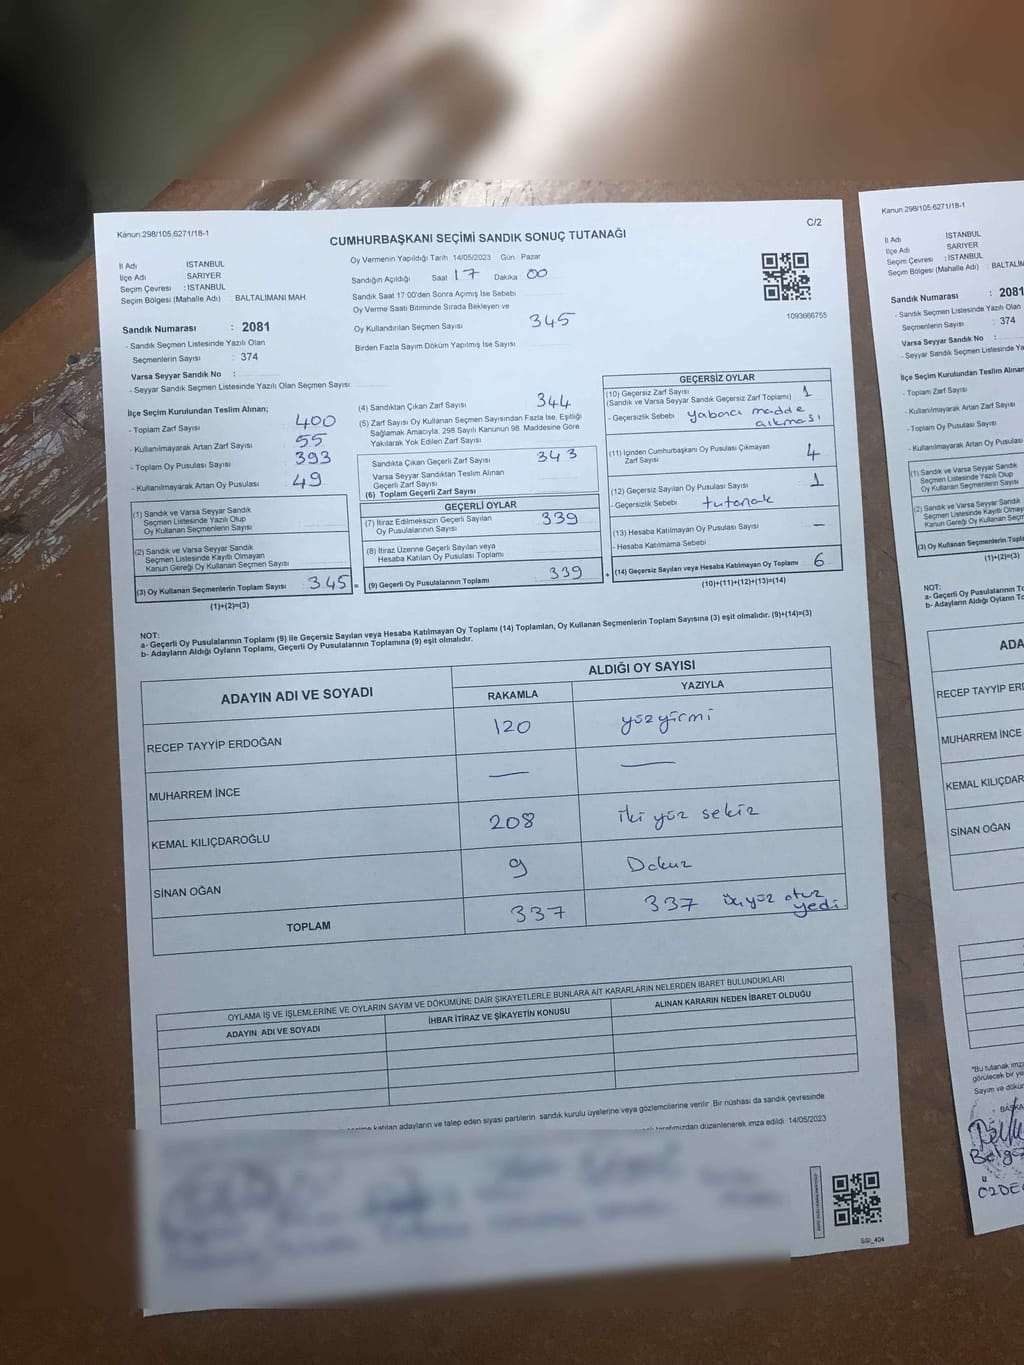 Kanun.298/105,6271/18-1
C/2
CUMHURBAŞKANI SEÇİMİ SANDIK SONUÇ TUTANAĞI
İl Adı İSTANBUL
İlçe Adı SARIYER
Seçim Çevresi : İSTANBUL
Seçim Bölgesi (Mahalle Adı) : BALTALİMANI MAH.
Oy Vermenin Yapıldığı Tarih 14/05/2023 Gün Pazar
Sandığın Açıldığı Saat 17 Dakika 00
Sandık Saat 17:00'den Sonra Açımış İse Sebebi
Oy Verme Saati Bitiminde Sırada Bekleyen ve
Oy Kullandırılan Seçmen Sayısı 345
Birden Fazla Sayım Döküm Yapılmış İse Sayısı
1093666755
Sandık Numarası : 2081
- Sandık Seçmen Listesinde Yazılı Olan
Seçmenlerin Sayısı : 374
Varsa Seyyar Sandık No :
- Seyyar Sandık Seçmen Listesinde Yazılı Olan Seçmen Sayısı
İlçe Seçim Kurulundan Teslim Alınan;
- Toplam Zarf Sayısı 400
- Kullanılmayarak Artan Zarf Sayısı 55
- Toplam Oy Pusulası Sayısı 393
- Kullanılmayarak Artan Oy Pusulası 49
(1) Sandık ve Varsa Seyyar Sandık
Seçmen Listesinde Yazılı Olup
Oy Kullanan Seçmenlerin Sayısı
(2) Sandık ve Varsa Seyyar Sandık
Seçmen Listesinde Kayıtlı Olmayan
Kanun Gereği Oy Kullanan Seçmen Sayısı
(3) Oy Kullanan Seçmenlerin Toplam Sayısı 345 =
(1)+(2)=(3)
(4) Sandıktan Çıkan Zarf Sayısı 344
(5) Zarf Sayısı Oy Kullanan Seçmen Sayısından Fazla İse, Eşitliği
Sağlamak Amacıyla, 298 Sayılı Kanunun 98. Maddesine Göre
Yakılarak Yok Edilen Zarf Sayısı
Sandıkta Çıkan Geçerli Zarf Sayısı 343
Varsa Seyyar Sandıktan Teslim Alınan
Geçerli Zarf Sayısı
(6) Toplam Geçerli Zarf Sayısı
GEÇERLİ OYLAR
(7) İtiraz Edilmeksizin Geçerli Sayılan
Oy Pusulalarının Sayısı 339
(8) İtiraz Üzerine Geçerli Sayılan veya
Hesaba Katılan Oy Pusulası Toplamı
(9) Geçerli Oy Pusulalarının Toplamı 339 +
GEÇERSİZ OYLAR
(10) Geçersiz Zarf Sayısı
(Sandık ve Varsa Seyyar Sandık Geçersiz Zarf Toplamı) 1
- Geçersizlik Sebebi yabancı madde
çıkması
(11) İçinden Cumhurbaşkanı Oy Pusulası Çıkmayan
Zarf Sayısı 4
(12) Geçersiz Sayılan Oy Pusulası Sayısı 1
- Geçersizlik Sebebi tutanak
(13) Hesaba Katılmayan Oy Pusulası Sayısı —
- Hesaba Katılmama Sebebi
(14) Geçersiz Sayılan veya Hesaba Katılmayan Oy Toplamı 6
(10)+(11)+(12)+(13)=(14)
NOT:
a- Geçerli Oy Pusulalarının Toplamı (9) ile Geçersiz Sayılan veya Hesaba Katılmayan Oy Toplamı (14) Toplamları, Oy Kullanan Seçmenlerin Toplam Sayısına (3) eşit olmalıdır. (9)+(14)=(3)
b- Adayların Aldığı Oyların Toplamı, Geçerli Oy Pusulalarının Toplamına (9) eşit olmalıdır.
ADAYIN ADI VE SOYADI ALDIĞI OY SAYISI
RAKAMLA YAZIYLA
RECEP TAYYİP ERDOĞAN 120 yüzyirmi
MUHARREM İNCE — —
KEMAL KILIÇDAROĞLU 208 iki yüz sekiz
SİNAN OĞAN 9 Dokuz
TOPLAM 337 337 üçyüz otuz
yedi.
OYLAMA İŞ VE İŞLEMLERİNE VE OYLARIN SAYIM VE DÖKÜMÜNE DAİR ŞİKAYETLERLE BUNLARA AİT KARARLARIN NELERDEN İBARET BULUNDUKLARI
ADAYIN ADI VE SOYADI İHBAR İTİRAZ VE ŞİKAYETİN KONUSU ALINAN KARARIN NEDEN İBARET OLDUĞU
katılan adayların ve talep eden siyasi partilerin, sandık kurulu üyelerine veya gözlemcilerine verilir. Bir nüshası da sandık çevresinde
tarafımızdan düzenlenerek imza edildi. 14/05/2023
SSI_404
Kanun.298/105,6271/18-1
İl Adı İSTANBUL
İlçe Adı SARIYER
Seçim Çevresi : İSTANBUL
Seçim Bölgesi (Mahalle Adı) : BALTALİM
Sandık Numarası : 2081
- Sandık Seçmen Listesinde Yazılı Olan
Seçmenlerin Sayısı : 374
Varsa Seyyar Sandık No :
- Seyyar Sandık Seçmen Listesinde Ya
İlçe Seçim Kurulundan Teslim Alınan
- Toplam Zarf Sayısı
- Kullanılmayarak Artan Zarf Sayısı
- Toplam Oy Pusulası Sayısı
- Kullanılmayarak Artan Oy Pusulası
(1) Sandık ve Varsa Seyyar Sandık
Seçmen Listesinde Yazılı Olup
Oy Kullanan Seçmenlerin Sayısı
(2) Sandık ve Varsa Seyyar Sandık
Seçmen Listesinde Kayıtlı Olmay
Kanun Gereği Oy Kullanan Seçm
(3) Oy Kullanan Seçmenlerin Topla
(1)+(2)=(3)
NOT:
a- Geçerli Oy Pusulalarının To
b- Adayların Aldığı Oyların To
ADA
RECEP TAYYİP ERD
MUHARREM İNCE
KEMAL KILIÇDAR
SİNAN OĞAN
*Bu tutanak imza
görülecek bir ye
Sayım ve dökü
BAŞKA